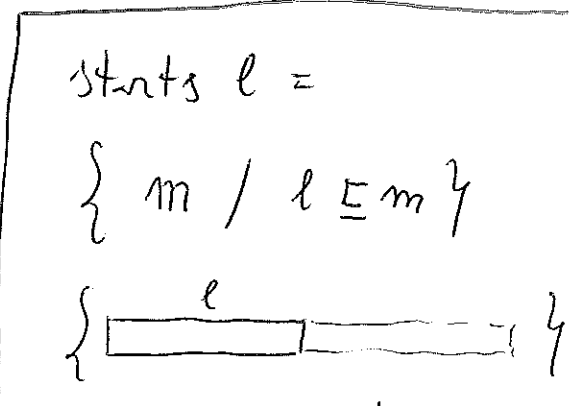 starts l =
{ m / l ⊑ m }
l
{ }